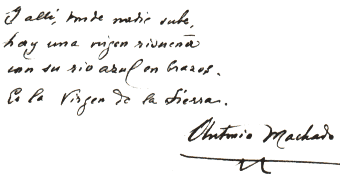 Y allí, donde nadie sube,
hay una virgen risueña
con su río azul en brazos.
Es la Virgen de la Sierra.
Antonio Machado